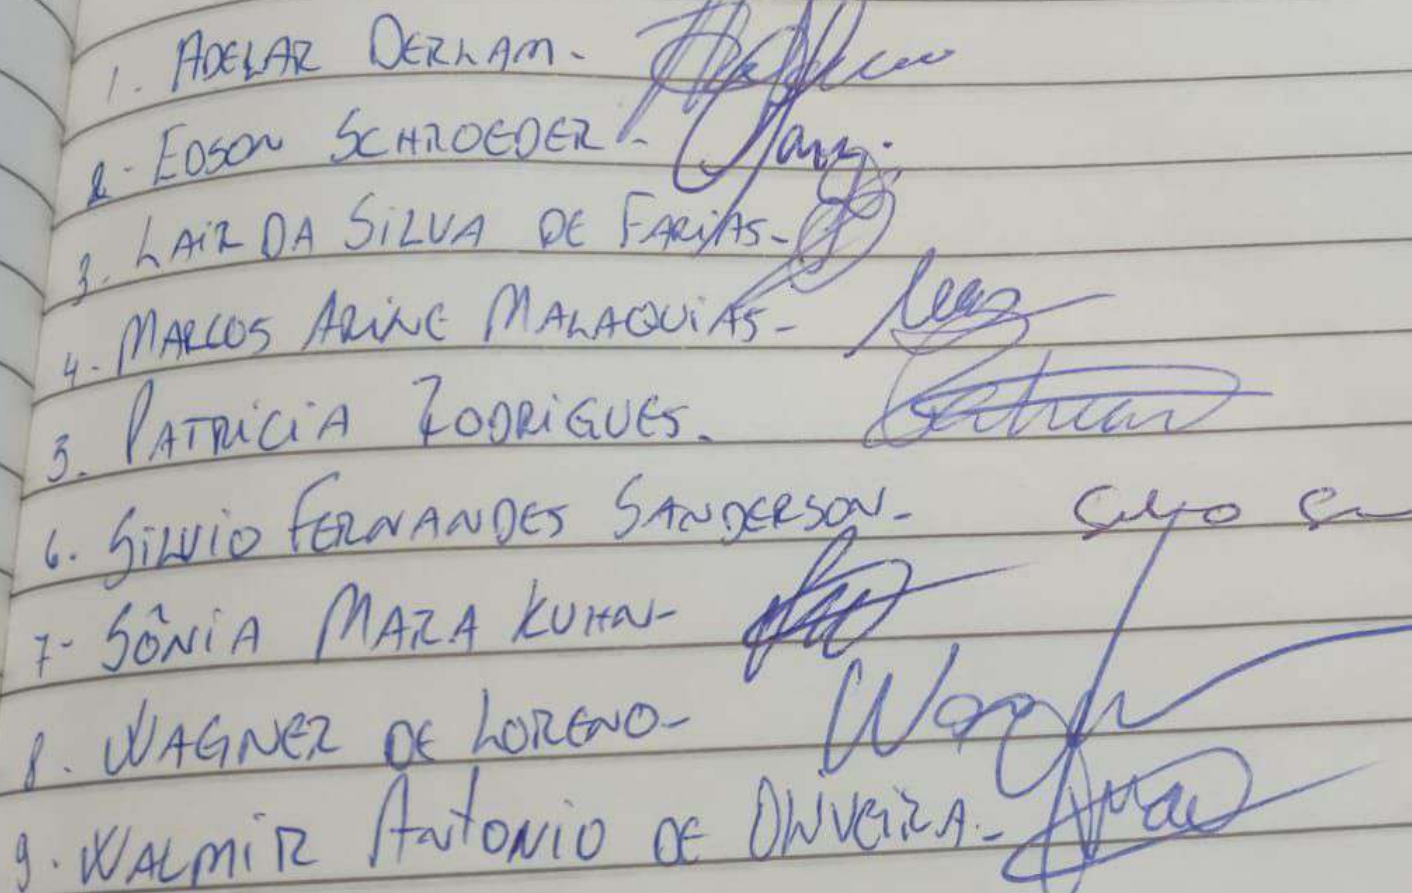 1. ADELAR DERLAM-
2- EDSON SCHROEDER-
3- LAIR DA SILVA DE FARIAS-
4- MARCOS ARINE MALAQUIAS-
5- PATRICIA RODRIGUES.
6. SILVIO FERNANDES SANDERSON-
7- SÔNIA MARA KUHN-
8. WAGNER DE LORENO-
9. WALMIR ANTONIO DE OLIVEIRA-